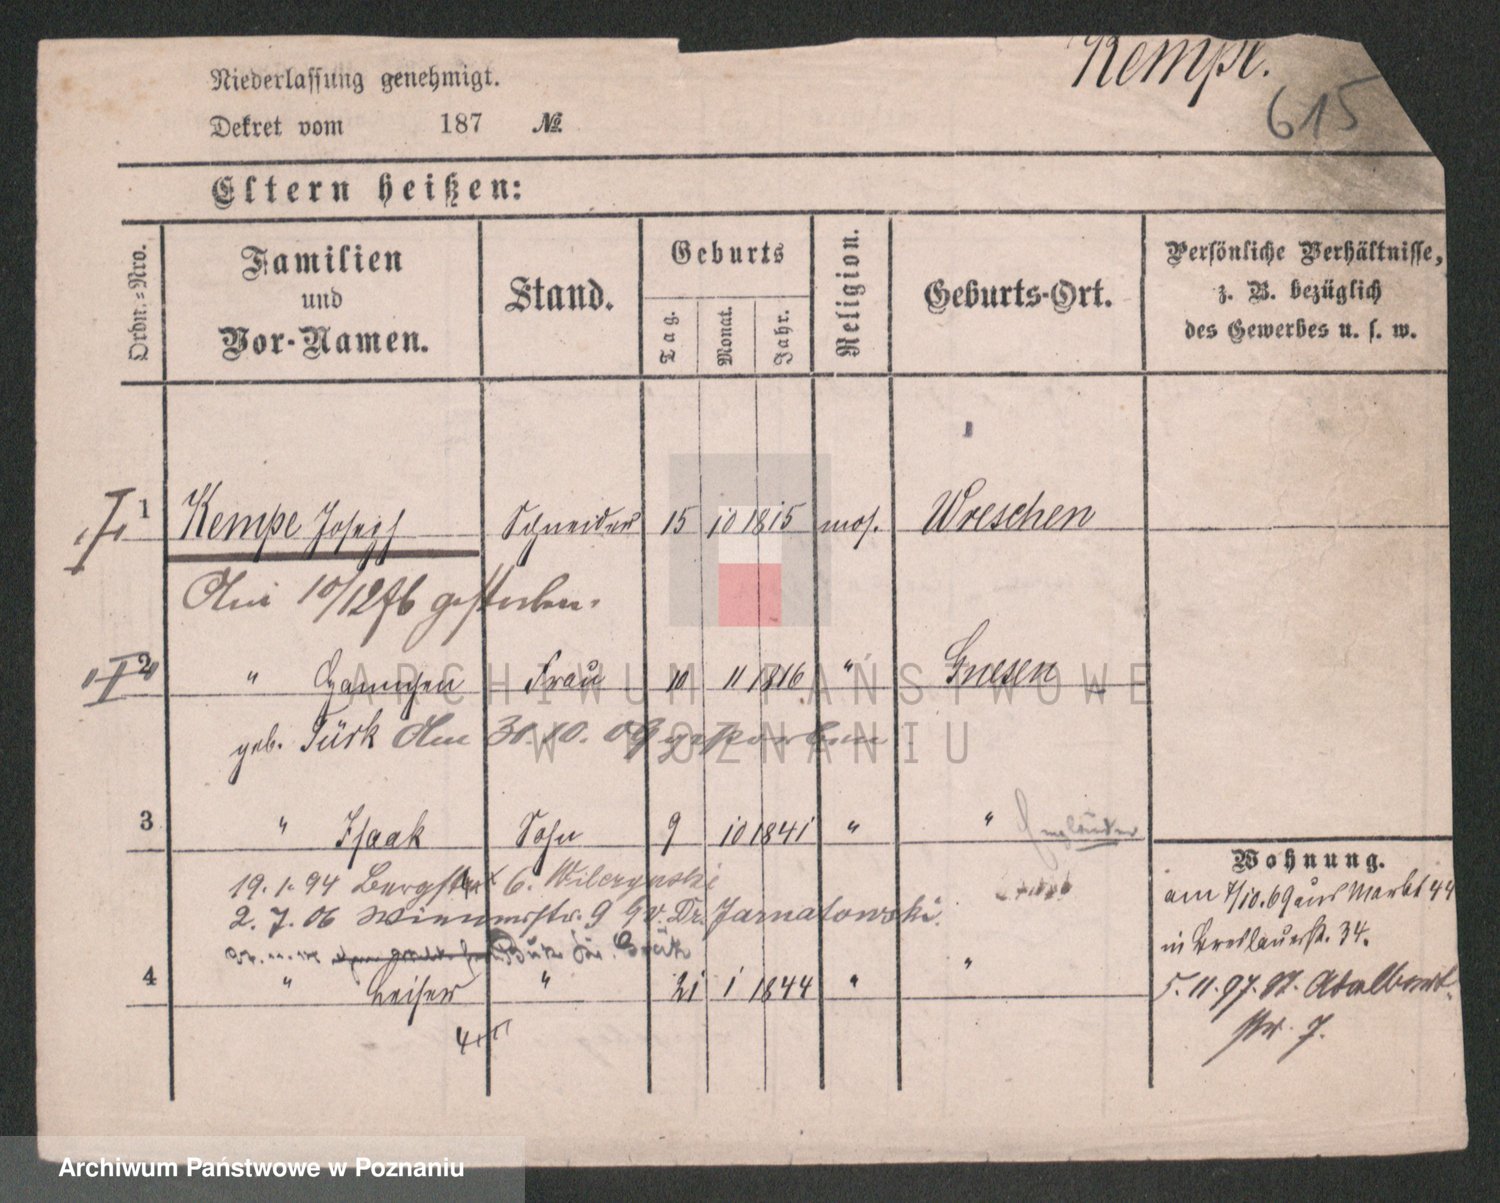 Kempe.
615
Niederlassung genehmigt.
Dekret vom 187 №
Eltern heißen:
Ordn.=Nro.
Familien und Vor-Namen.
Stand.
Geburts
Tag.
Monat.
Jahr.
Religion.
Geburts-Ort.
Persönliche Verhältnisse,
z. B. bezüglich
des Gewerbes u. s. w.
1 Kempe Joseph Schneider 15 10 1815 mos. Wreschen
Am 10/12 76 gestorben.
2 " Hannchen Frau 10 11 1816 " Gnesen
geb. Türk Am 30.10.09 gestorben
3 " Isaak Sohn 9 10 1841 " "
Wohnung.
19.1.94 Bergstr 6. Wilczynski
am 7/10.69 aus Markt 44
2.7.06 Wienerstr. 9 b. Dr. Jarnatowski.
in Breslauerst. 34.
4 " Leiser " 21 1 1844 " "
5.11.97. St. Adalbert-
str. 7.
ARCHIWUM PAŃSTWOWE
W POZNANIU
Archiwum Państwowe w Poznaniu